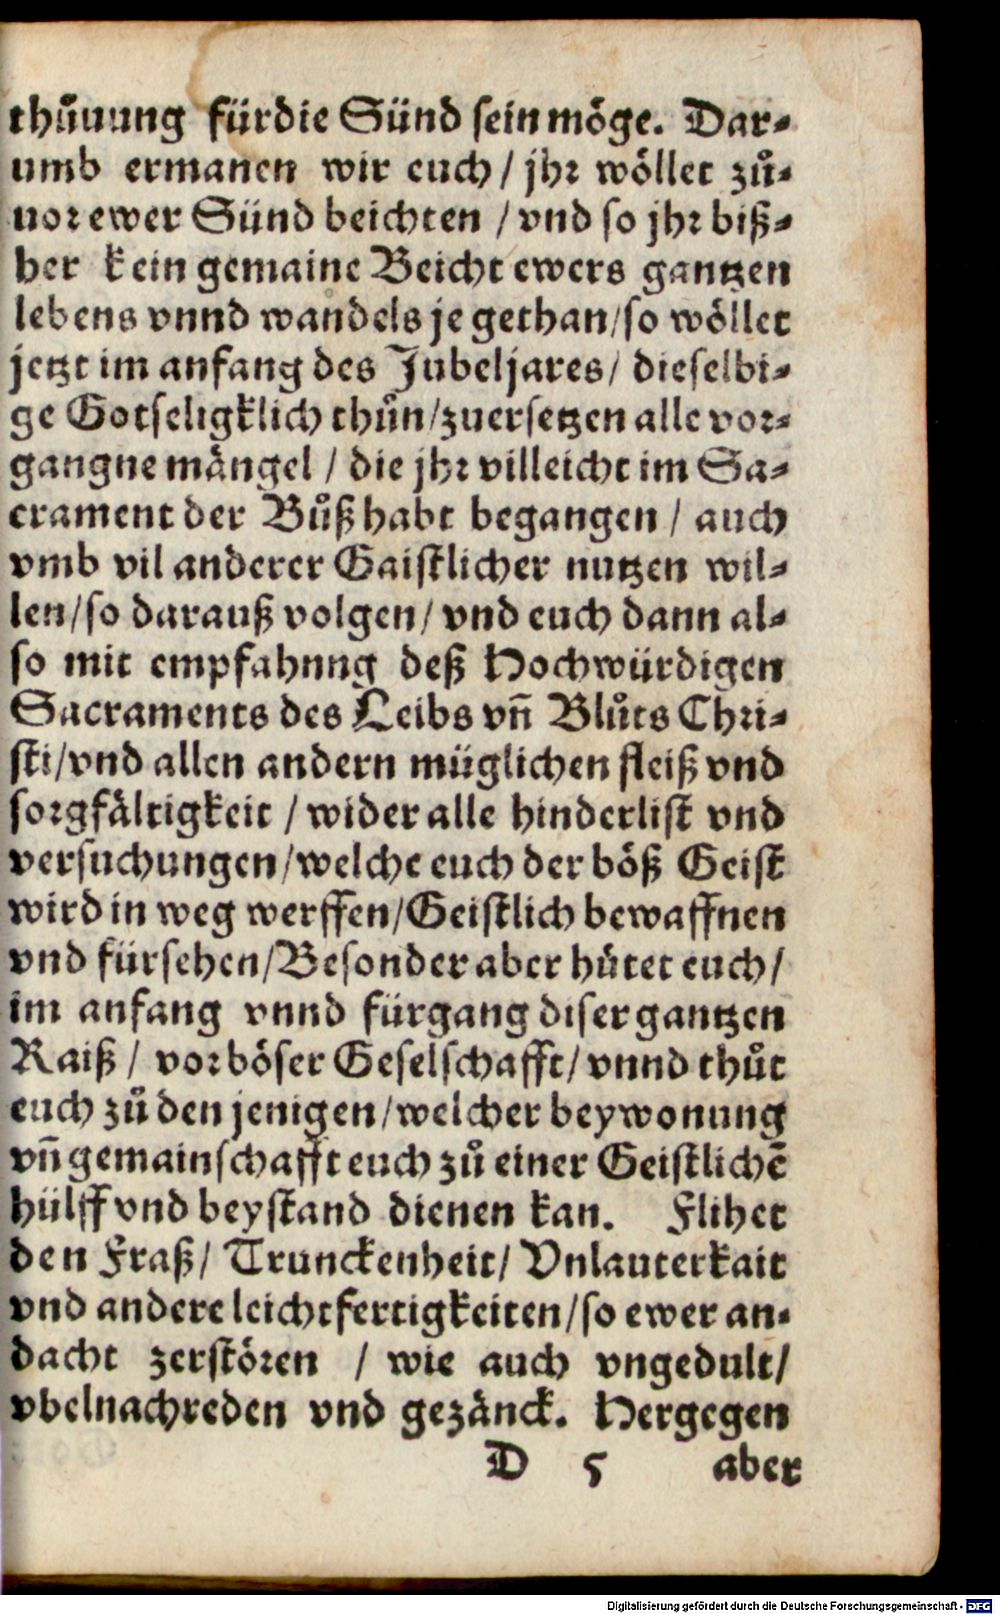 thůuung fürdie Sünd sein möge. Dar⸗
umb ermanen wir euch / jhr wöllet zů⸗
uor ewer Sünd beichten / vnd so jhr biß⸗
her kein gemaine Beicht ewers gantzen
lebens vnnd wandels je gethan/so wöllet
jetzt im anfang des Jubeljares/ dieselbi⸗
ge Gotseligklich thůn/zuersetzen alle vor⸗
gangne mängel / die jhr villeicht im Sa⸗
crament der Bůß habt begangen / auch
vmb vil anderer Gaistlicher nutzen wil⸗
len/so darauß volgen/ vnd euch dann al⸗
so mit empfahnng deß Hochwürdigen
Sacraments des Leibs vñ Blůts Chri⸗
sti/vnd allen andern müglichen fleiß vnd
sorgfältigkeit / wider alle hinderlist vnd
versuchungen/welche euch der böß Geist
wird in weg werffen/Geistlich bewaffnen
vnd fürsehen/Besonder aber hütet euch/
im anfang vnnd fürgang diser gantzen
Raiß / vor böser Geselschafft/ vnnd thůt
euch zů den jenigen/welcher beywonung
vñ gemainschafft euch zů einer Geistlichẽ
hülff vnd beystand dienen kan. Flihet
den Fraß/ Trunckenheit/ Vnlauterkait
vnd andere leichtfertigkeiten/so ewer an⸗
dacht zerstören / wie auch vngedult/
vbelnachreden vnd gezänck. Hergegen
D 5 aber
Digitalisierung gefördert durch die Deutsche Forschungsgemeinschaft - DFG